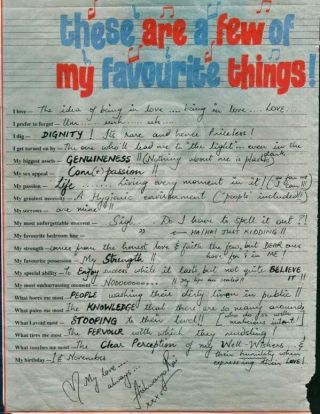 these are a few of
my favourite things!
I love - The idea of being in love .... being in love .... LOVE...
I prefer to forget - Um ... uuh ... uh...
I dig - DIGNITY! Its rare and hence Priceless!
I get turned on by - The one who'll lead me to "the light" even in the dark
My biggest assets - GENUINENESS!! (Nothing about me is plastic)
My sex appeal - Com(e)passion!!
My passion - Life ...... Living every moment in it! (as far as I can!!!)
My greatest necessity - A Hygienic environment ("people" included!!)
My sorrows - are mine!!!
My most unforgettable moment - Sigh... Do I have to spell it out?!
My favourite bedroom line - " " HA!HA! JUST KIDDING!!
My strength - comes from the honest love & faith the few, but DEAR ones have for & in ME!
My favourite possession - My Strength!!
My special ability - to Enjoy success while it lasts but not quite BELIEVE IT!!
My most embarrassing moment - NOOOOOOOO....!!
What bores me most - PEOPLE washing their dirty linen in public!!
What pains me most - The KNOWLEDGE that there are so many around
What I avoid most - STOOPING to their level!
What tires me most - The FERVOUR with which they
What touches me most - The Clear Perception of my Well-Wishers.. & their humility when expressing their LOVE!
My birthday - 1st November
My love...
always...
xxx